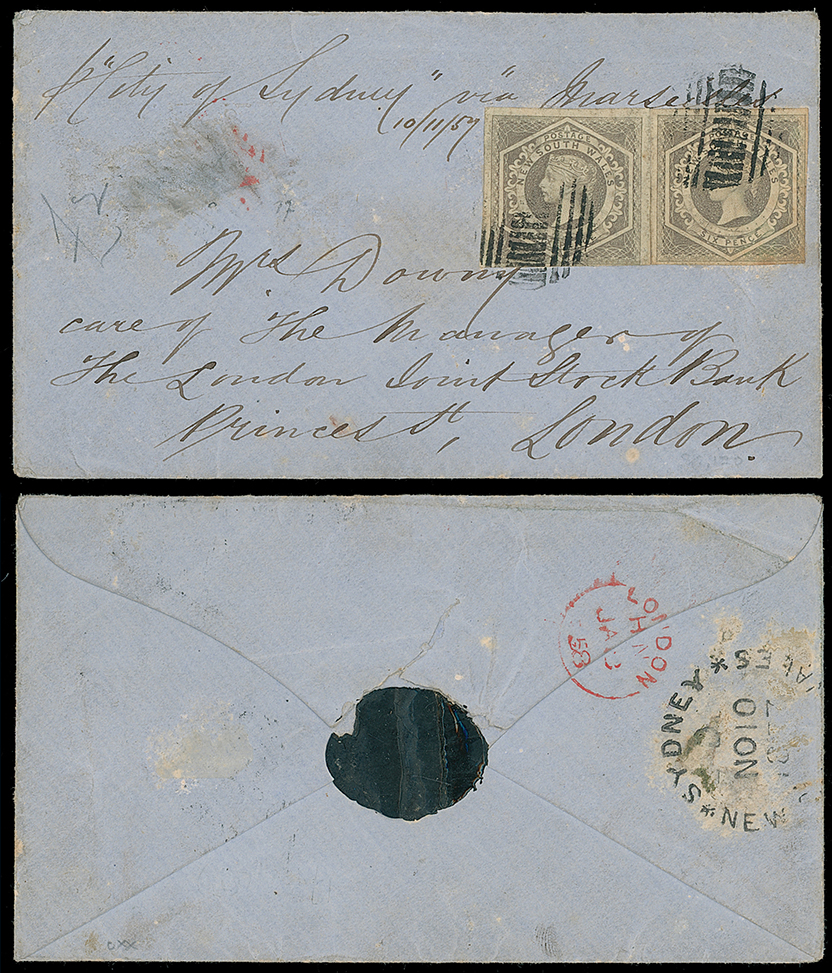 p "City of Sydney" via Marseilles
10/11/57
POSTAGE
NEW SOUTH WALES
WALES
SIX PENCE
17
Mrs Downy
care of The Manager of
The London Joint Stock Bank
Princes St, London.
LONDON
H
JA
58
SYDNEY * NEW
NO 10
cxx